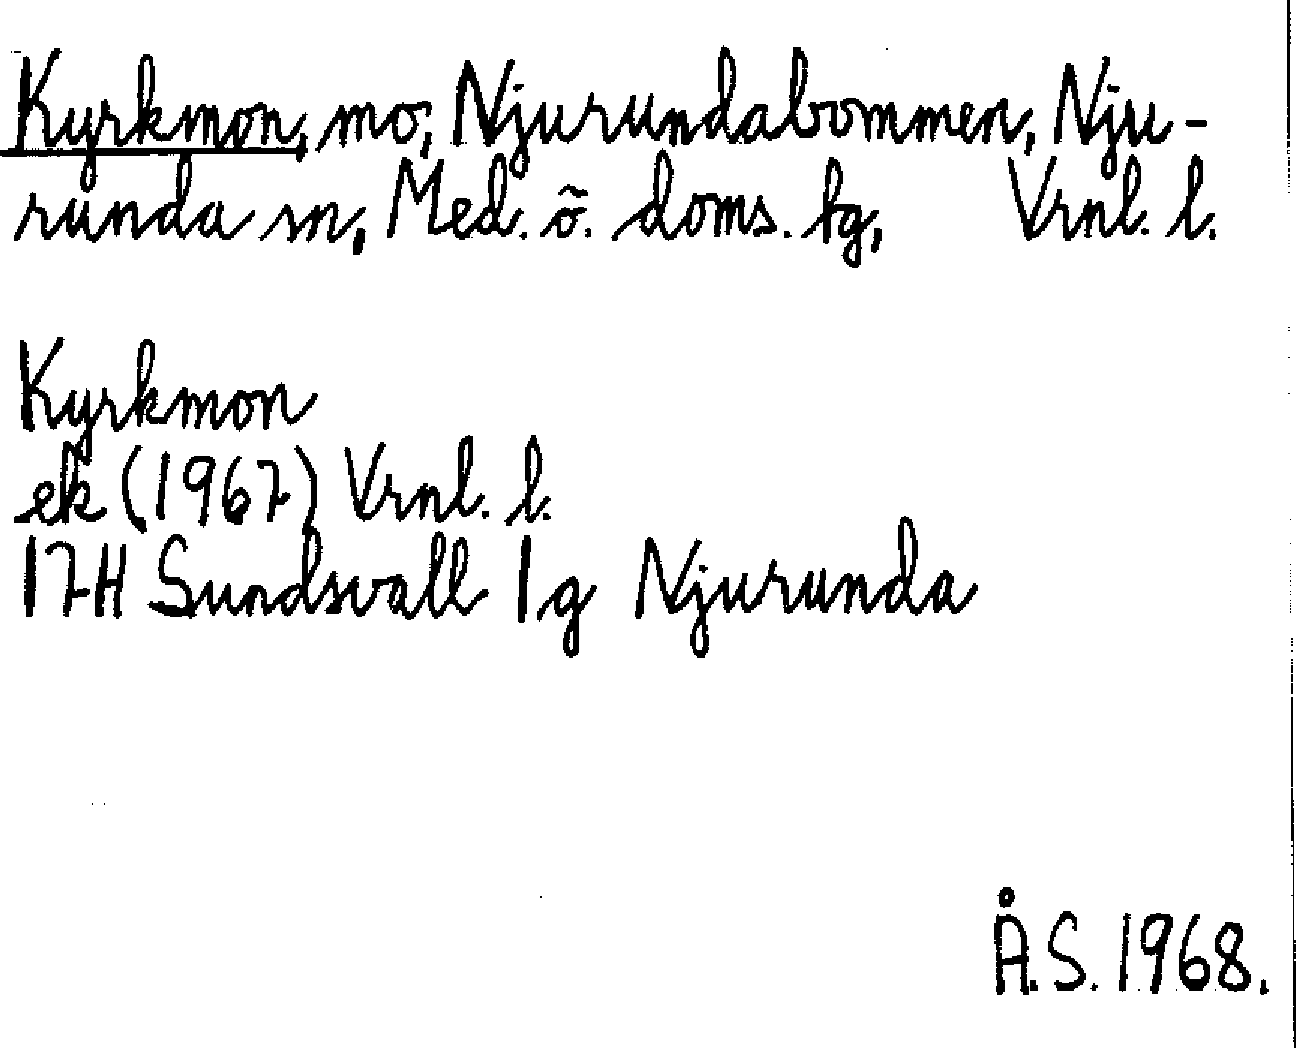 Kyrkmon, mo, Njurundabommen, Nju-
runda sn, Med. ö. doms. tg, Vrnl. l.
Kyrkmon
ek (1967) Vrnl. l.
17H Sundsvall 1g Njurunda
Å.S. 1968.